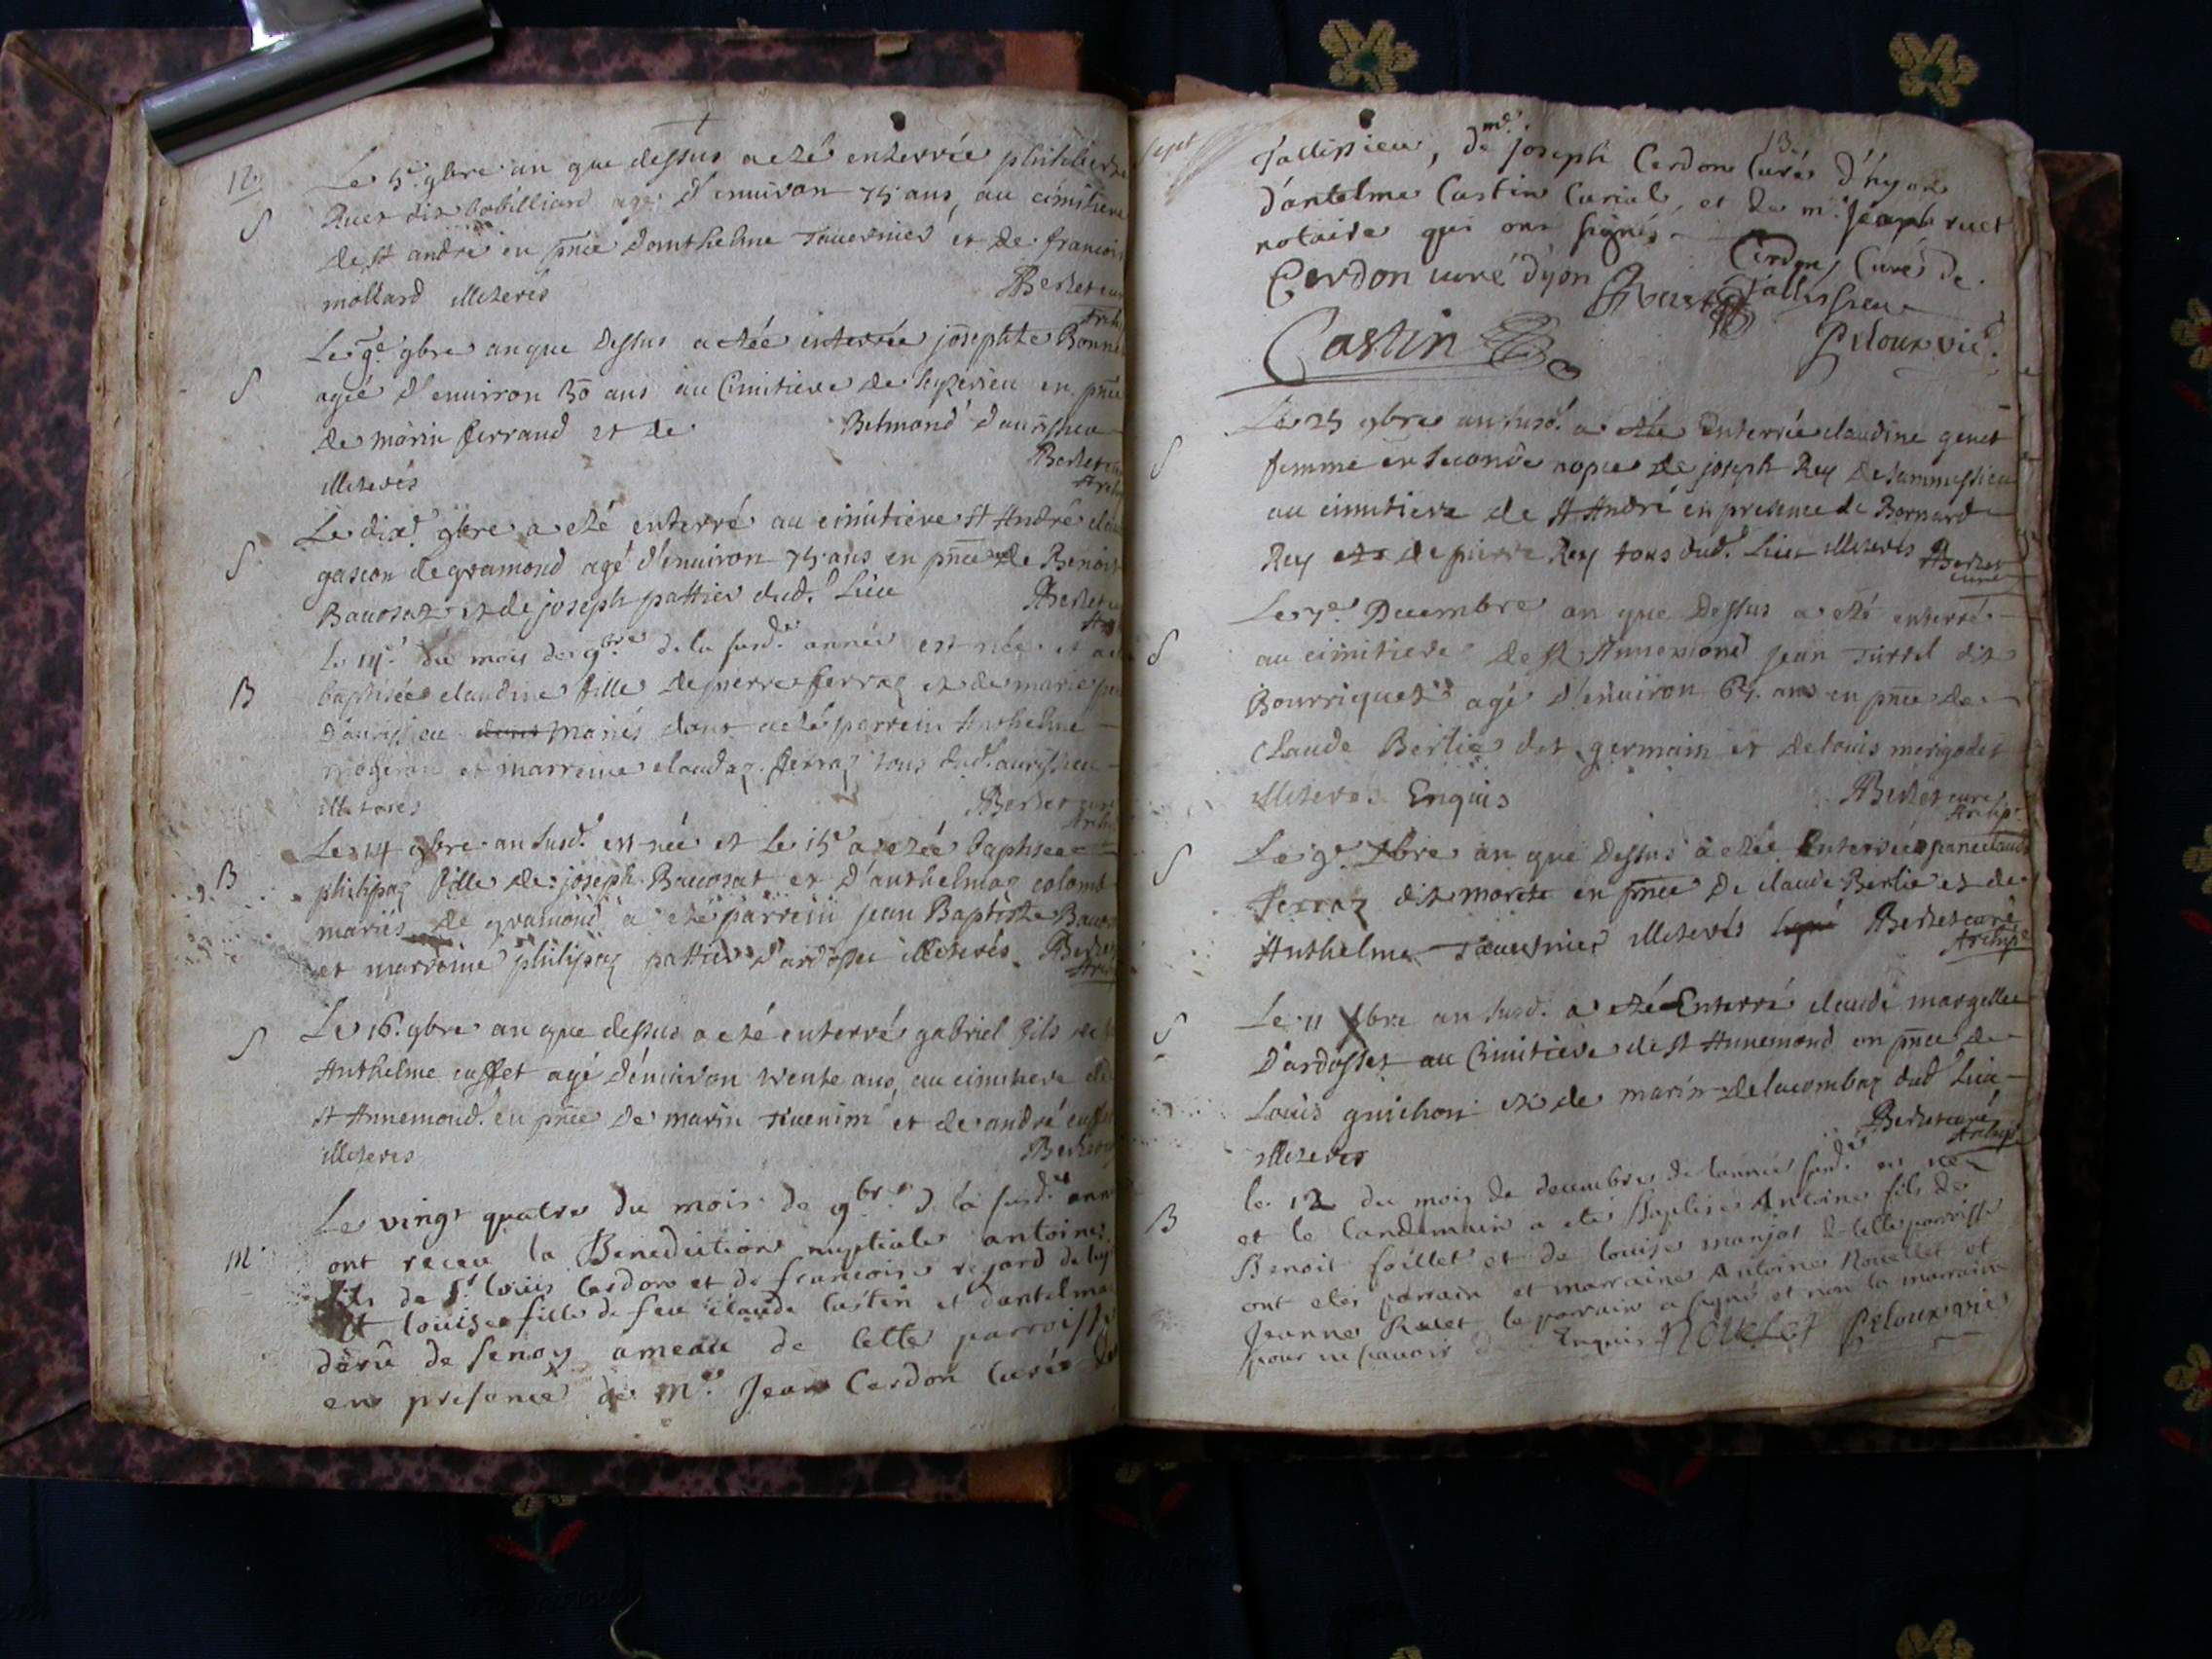 12.
Le 5e 9bre an que dessus a eté enterrée philiberte
Ruet dit babilliard agé d'environ 75 ans, au cimitiere
de st andré en pnce d'anthelme Tavernier et de francois
mollard illiterés
S
Berlet cur
Arch
Le 9e 9bre an que Dessus a etée enterrée josephte Bonne
agée d'environ 30 ans au Cimitiere de en pnce
de marin ferrand et de Belmond d'aurissieu
illiterés
S
Berlet cu
Arch
Le dixe 9bre a eté enterré au cimitiere st André
gascon de gramond agé d'environ 75 ans en pnce de Benoit
Bavosat et de joseph pattier dud. Lieu
S
Berlet cu
Le 14e du mois de 9bre de la susd. année est née et a
baptisée claudine fille de pierre ferraz et de marie
d'aurissieu mariés dont a eté parrein Anthelme
et marreine claudaz ferraz tous dud. aurissieu
illiterés
B
Berlet cur
Le 14 9bre an susd. est née et le 15e a etée baptisée
philipaz fille de joseph Bavosat et d'anthelmaz colomb
mariés de gramond a eté parrein jean Baptiste Bavos
et marreine philipaz pattier d'ardosset illiterés Berlet
B
Le 16. 9bre an que dessus a eté enterré gabriel fils de
Anthelme cusset agé d'environ trente ans, au cimitiere de
st Annemond en pnce de marin et de andré
illiterés
S
Berlet cur
Le vingt quatre du mois de 9bre de la susd. ann
ont receu la Benediction nuptiale antoine
fils de sr louis Cerdon et de francoise regard de
et louise fille de feu claude Castin et d'antelma
dérû de senoy ameau de cette parroisse
en presence de Mre Jean Cerdon Curé de
M
Sept
13
Tallissieu, de mre joseph Cerdon Curé d'hyon
d'antelme Castin Curial, et de me Joseph ruet
notaire qui ont signés
Cerdon curé d'yon Ruet Cerdon Curé de
Tallissieu
Castin Peloux vic.
Le 25 9bre an susd. a etée Enterrée claudine genet
femme en seconde nopce de joseph Rey de sammessieu
au cimitiere de st André en presence de Bernard
Rey et de pierre Rey tous dud. Lieu illiterés Berlet
curé
S
Le 7e Decembre an que Dessus a eté enterré
au cimitiere de st Annemond jean Turrel dit
Bourriquet agé d'environ 65. ans en pnce de
Claude Berlie dit germain et de louis merigodet
illiterés Enquis
S
Berlet curé
Archip.
Le 9e Xbre an que Dessus a etée Enterrée
ferraz dit morete en pnce de claude Berlie et de
Anthelme Tavernier illiterés Berlet curé
Archip.
S
Le 11 Xbre an susd. a eté Enterré claude margellee
D'ardosset au Cimitiere de st Annemond en pnce de
Louis guichon et de marin delacombaz dud. Lieu
illiterés
S
Berlet curé
Archip.
le 12 du mois de decembre de l'année susd. est né
et le landemain a eté Baptisé Antoine fils de
Benoit foillet et de louise manjot de cette parroisse
ont etés parrain et marraine Antoine Novellet et
Jeanne Ruet le parrain a signé et non la marraine
pour ne scavoir de ce Enquis Novelet Peloux vic
B